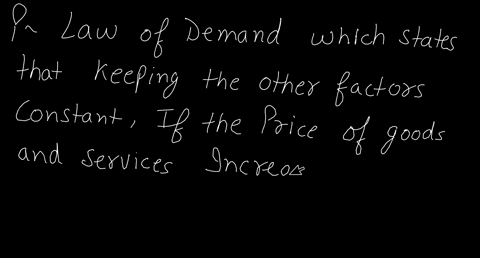 P~ Law of Demand which states
that keeping the other factors
Constant, If the Price of goods
and services Increas